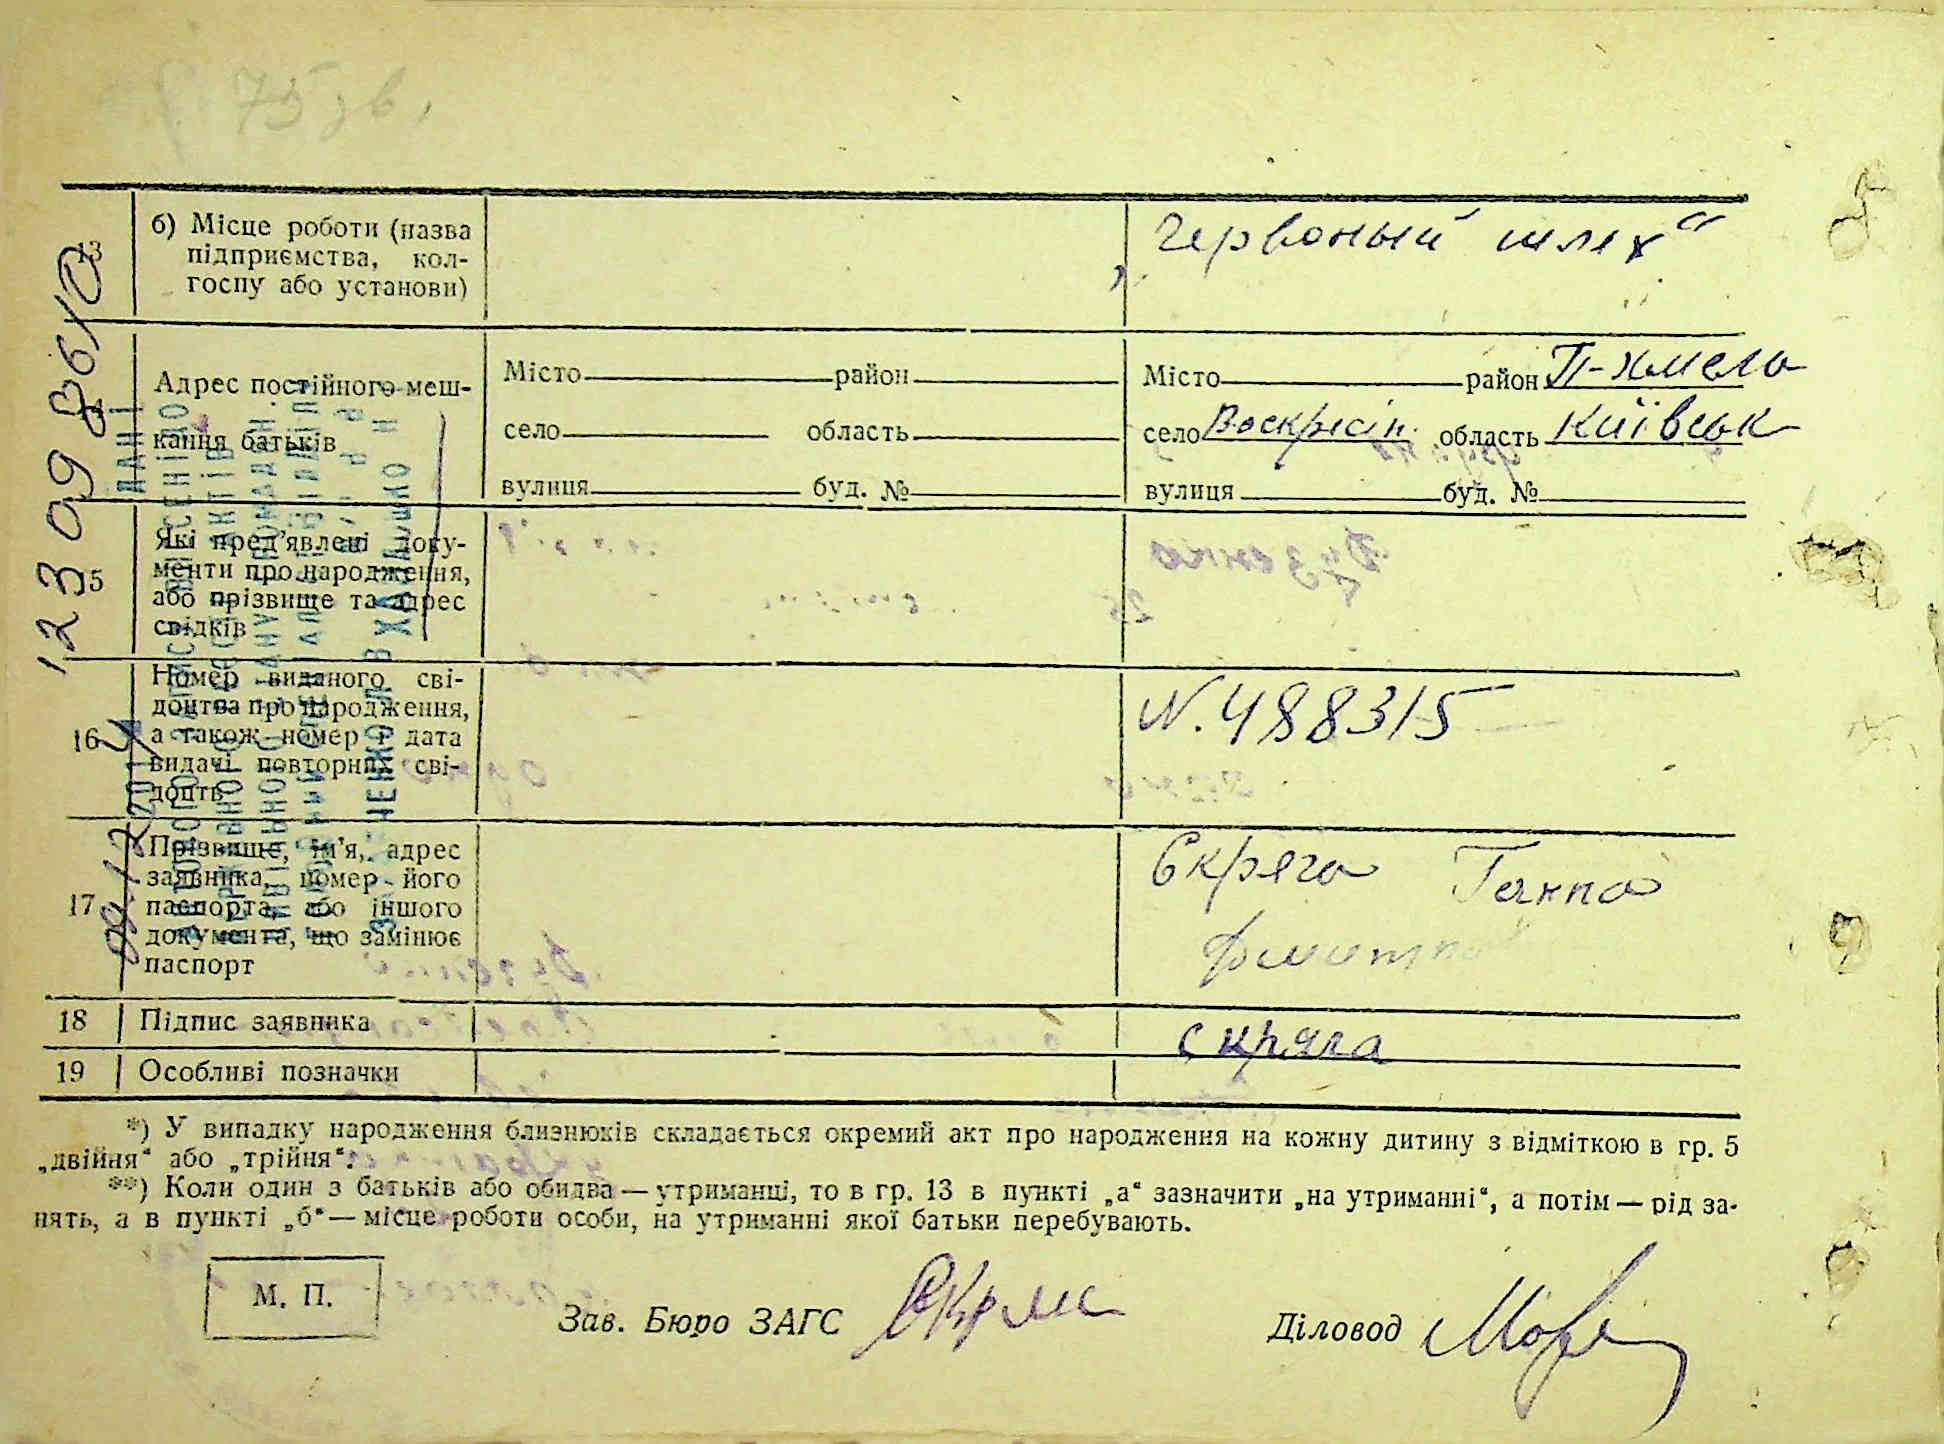 75 зв.
13
б) Місце роботи (назва
підприємства, кол-
госпу або установи)
„Червоный шлях“
Адрес постійного меш-
кання батьків
Місто район
село область
вулиця буд. №
Місто район П-Хмель
село Воскресін. область Київськ
вулиця буд. №
15
Які пред’явлені доку-
менти про народження,
або прізвище та адрес
свідків
16
Номер виданого сві-
доцтва про народження,
а також номер і дата
видачі повторних сві-
доцтв
N. 488315
17
Прізвище, ім’я, адрес
заявника, номер його
паспорта, або іншого
документа, що замінює
паспорт
Скряга Ганна
18 Підпис заявника
скряга
19 Особливі позначки
*) У випадку народження близнюків складається окремий акт про народження на кожну дитину з відміткою в гр. 5
„двійня“ або „трійня“.
**) Коли один з батьків або обидва — утриманці, то в гр. 13 в пункті „а“ зазначити „на утриманні“, а потім — рід за-
нять, а в пункті „б“ — місце роботи особи, на утриманні якої батьки перебувають.
М. П.
Зав. Бюро ЗАГС
Діловод
12309 8610